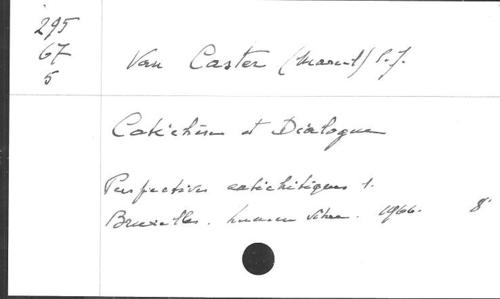 295
67
5
Van Caster (Marcel) S.J.
Catéchèse et Dialogue
Perspectives catéchétiques 1.
Bruxelles. Lumen Vitae. 1966. 8°